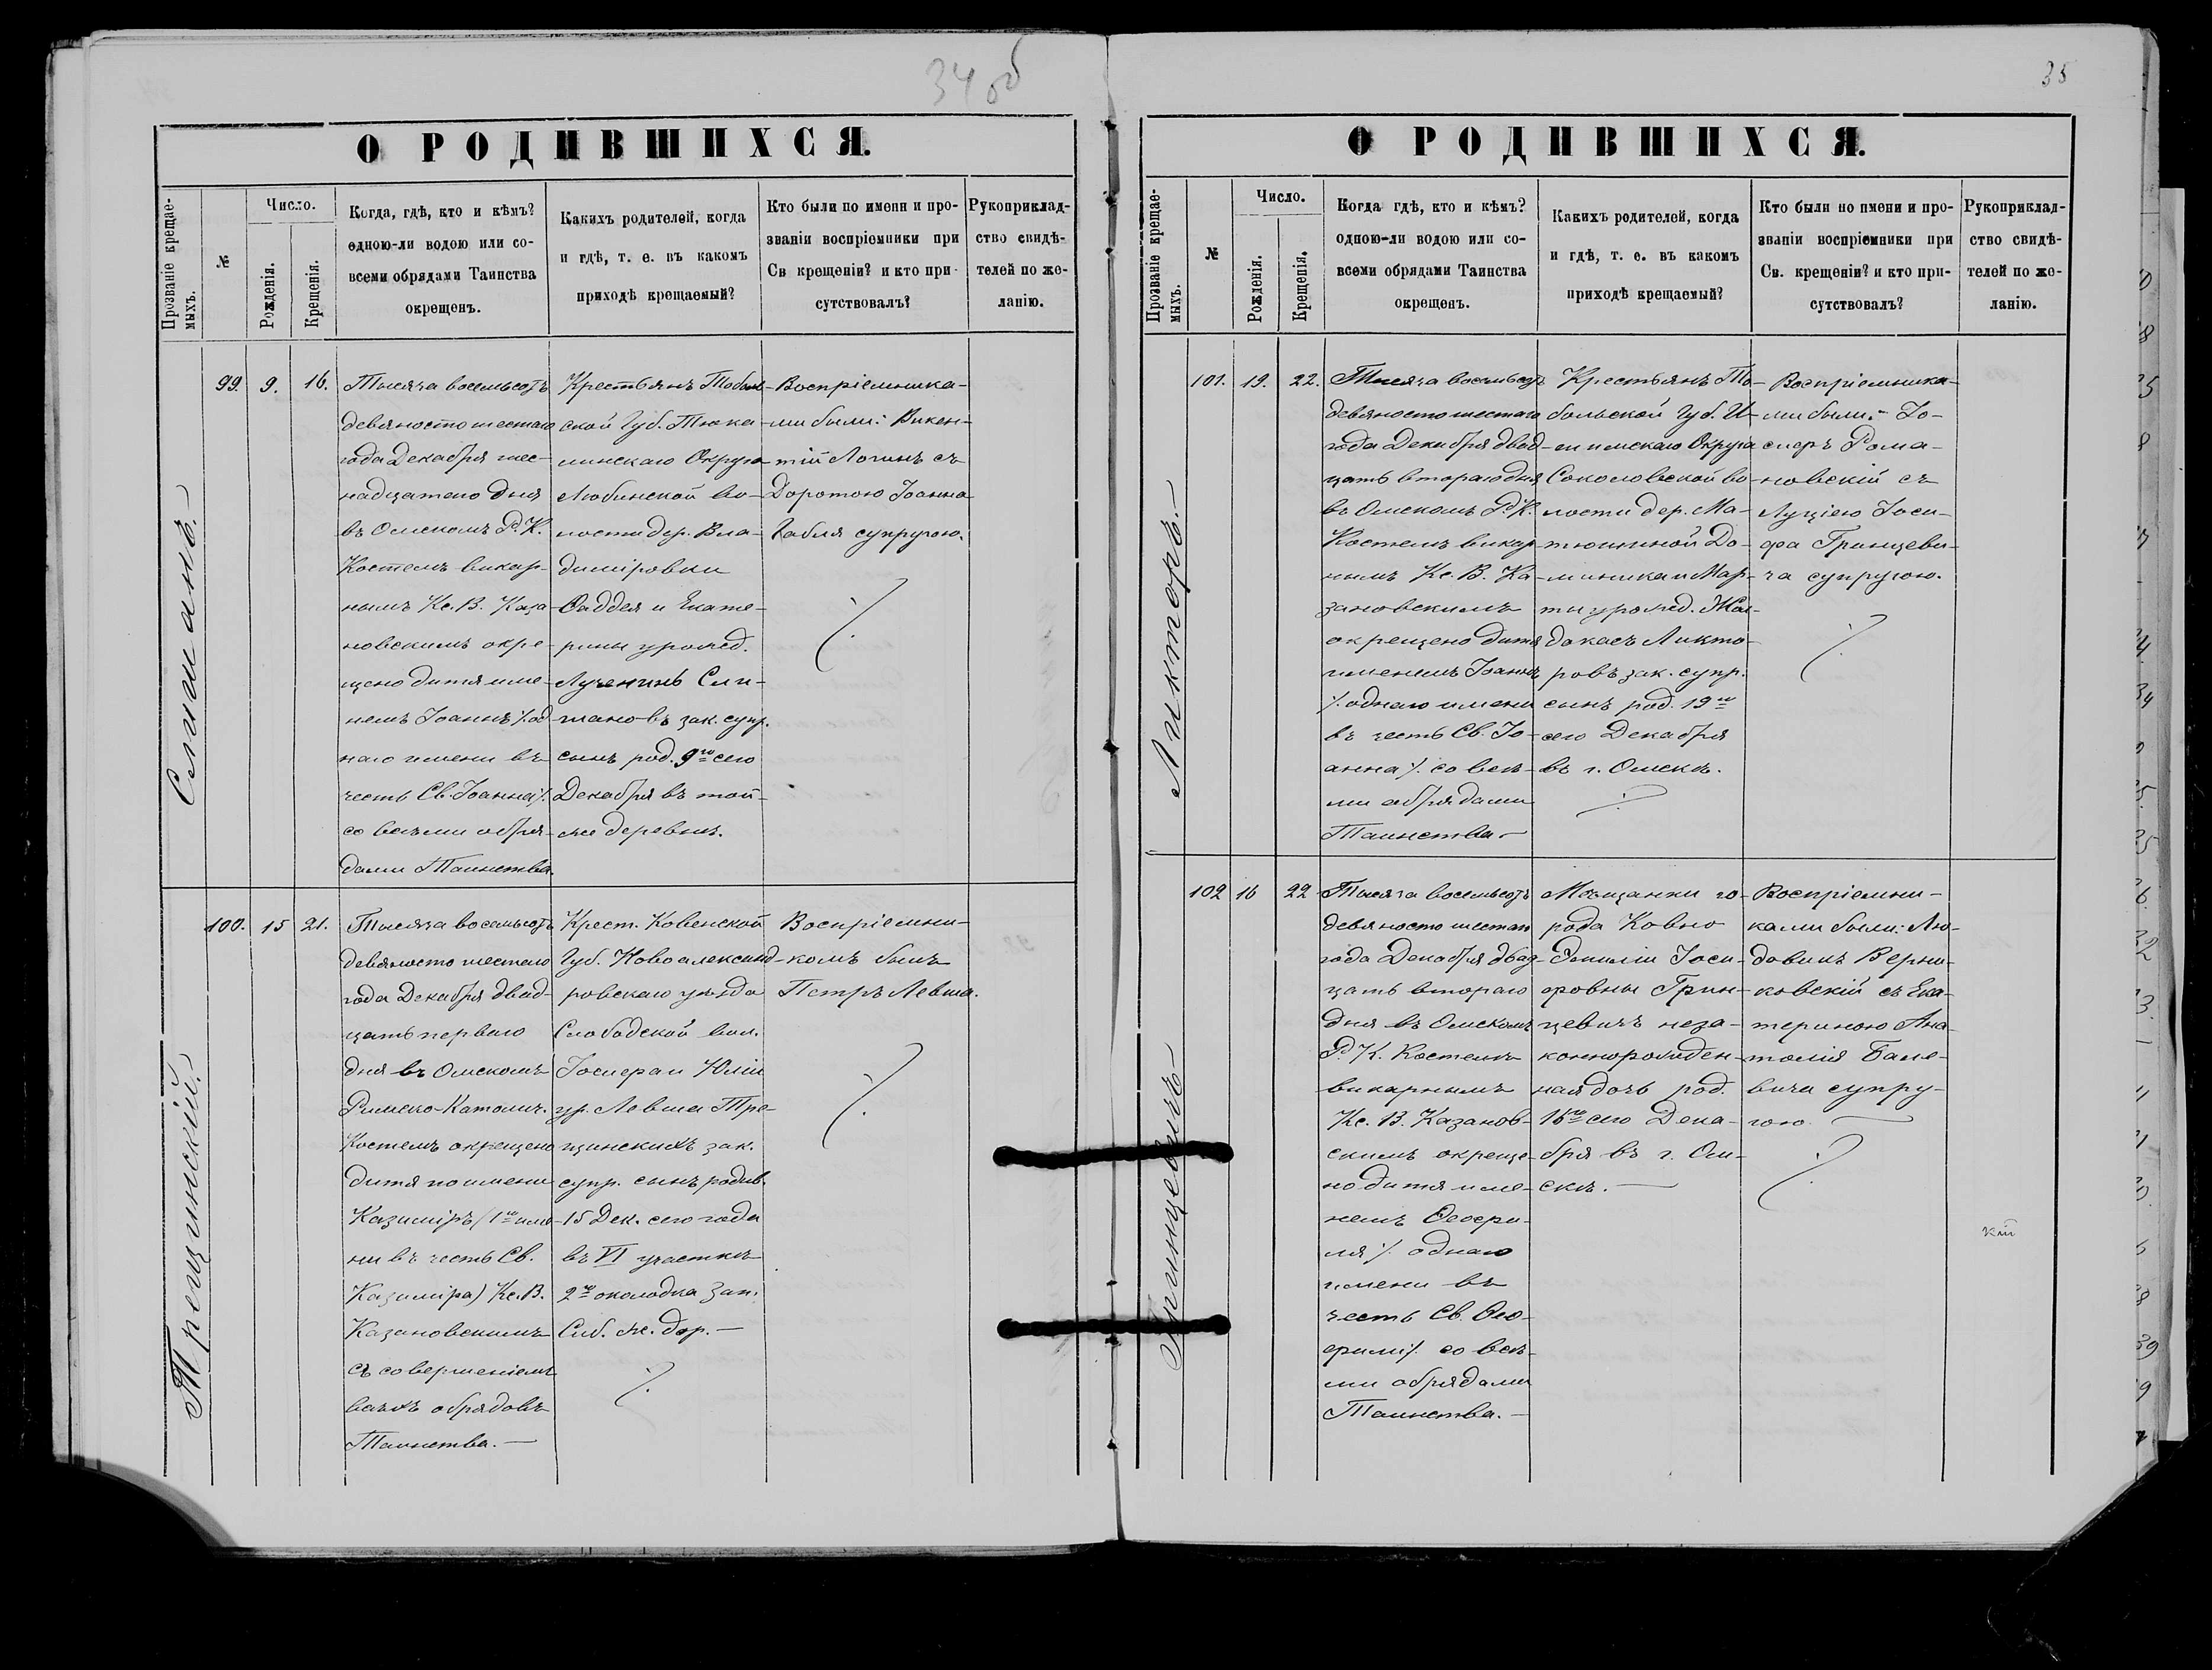 34 об
О РОДИВШИХСЯ.
Прозваніе крещае-
мыхъ.
№
Число.
Рожденія.
Крещенія.
Когда, гдѣ, кто и кѣмъ?
одною-ли водою или со-
всеми обрядами Таинства
окрещенъ.
Какихъ родителей, когда
и гдѣ, т. е. въ какомъ
приходѣ крещаемый?
Кто были по имени и про-
званіи воспріемники при
Св крещеніи? и кто при-
сутствовалъ?
Рукоприклад-
ство свидѣ-
телей по же-
ланію.
99. 9. 16.
Тысяча восемьсотъ
девяносто шестаго
года Декабря шес-
надцатаго дня
въ Омскомъ Р. К.
Костелѣ викар-
нымъ Кс. В. Каза-
новскимъ окре-
щено дитя име-
немъ Іоаннъ /. од
наго имени въ
честь Св. Іоанна /.
со всѣми обря-
дами Таинства.
Крестьянъ Тоболь-
ской Губ. Тюка-
линскаго Округа
Любинской во-
лости дер. Вла-
диміровки
Фаддея и Екате-
рины урожд.
Сли-
мановъ зак. супр.
сынъ род. 9го сего
Декабря въ той-
же деревнѣ.
Воспріемника-
ми были: Викен-
тій Логинъ съ
Доротою Іоанна
Габля супругою.
100. 15 21.
Трещинскій.
Тысяча восемьсотъ
девяносто шестаго
года Декабря двад-
цать перваго
дня въ Омскомъ
Римско-Католич.
Костелѣ окрещено
дитя по имени
Казиміръ (1го име-
ни въ честь Св.
Казиміра) Кс. В.
Казановскимъ
съ совершеніемъ
всѣхъ обрядовъ
Таинства.—
Крест. Ковенской
Губ. Новоалександ-
ровскаго уѣзда
Слободской вол.
Іосифа и Юліи
ур. Левша Тре-
щинскихъ зак.
супр. сынъ родив.
15 Дек. сего года
въ VI участкѣ
2го околодка Зап.
Сиб. ж. дор.—
Воспріемни-
комъ былъ
Петръ Левша.
35
О РОДИВШИХСЯ.
Прозваніе крещае-
мыхъ.
№
Число.
Рожденія.
Крещенія.
Когда гдѣ, кто и кѣмъ?
одною-ли водою или со-
всеми обрядами Таинства
окрещенъ.
Какихъ родителей, когда
и гдѣ, т. е. въ какомъ
приходѣ крещаемый?
Кто были по имени и про-
званіи воспріемники при
Св. крещеніи? и кто при-
сутствовалъ?
Рукоприклад-
ство свидѣ-
телей по же-
ланію.
101. 19. 22.
Ликторъ.—
Тысяча восемьсотъ
девяносто шестаго
года Декабря двад-
цать втораго дня
въ Омскомъ Р. К.
Костелѣ викар-
нымъ Кс. В. Ка-
зановскимъ
окрещено дитя
именемъ Іоаннъ
/. однаго имени
въ честь Св. Іо-
анна /. со всѣ-
ми обрядами
Таинства—
Крестьянъ То-
больской Губ. И-
шимскаго Округа
Соколовской во-
лости дер. Ма-
тюшиной До-
миника и Мар-
ты урожд.
Ликто-
ровъ зак. супр.
сынъ род. 19го
сего Декабря
въ г. Омскѣ.
Воспріемника-
ми были:- Іо-
сифъ Рома-
новскій съ
Луціею Іоси-
фа Гринцеви-
ча супругою.
102 16 22
Гринцевичъ—
Тысяча восемьсотъ
девяносто шестаго
года Декабря двад-
цать втораго
дня въ Омскомъ
Р. К. Костелѣ
викарнымъ
Кс. В. Казанов-
скимъ окреще-
но дитя име-
немъ Феофи-
ля /. однаго
имени въ
честь Св. Фео-
филіи /. со всѣ-
ми обрядами
Таинства.—
Мѣщанки го-
рода Ковно
Эмиліи Іоси-
фовны Грин-
цевичъ неза-
коннорожден-
ная дочь род.
16го сего Дека-
бря въ г. Ом-
скѣ.—
Воспріемни-
ками были: Лю-
довикъ Верни-
ковскій съ Ека-
териною Ана-
толія Бале-
вича супру-
гою.